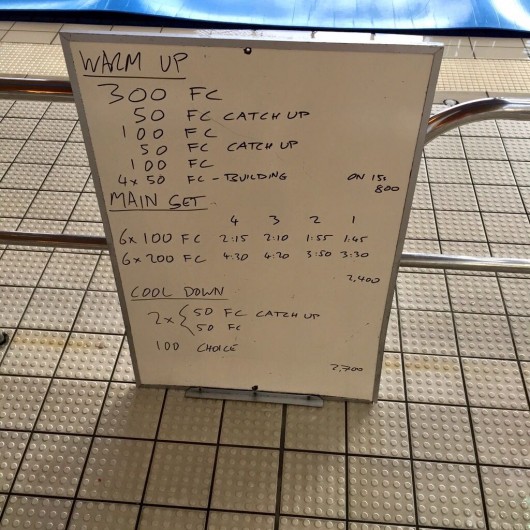 WARM UP
300 FC
50 FC CATCH UP
100 FC
50 FC CATCH UP
100 FC
4x50 FC - BUILDING ON 15s
800
MAIN SET
4 3 2 1
6x100 FC 2:15 2:10 1:55 1:45
6x200 FC 4:30 4:20 3:50 3:30
2,400
COOL DOWN
2x { 50 FC CATCH UP
50 FC
100 CHOICE
2,700